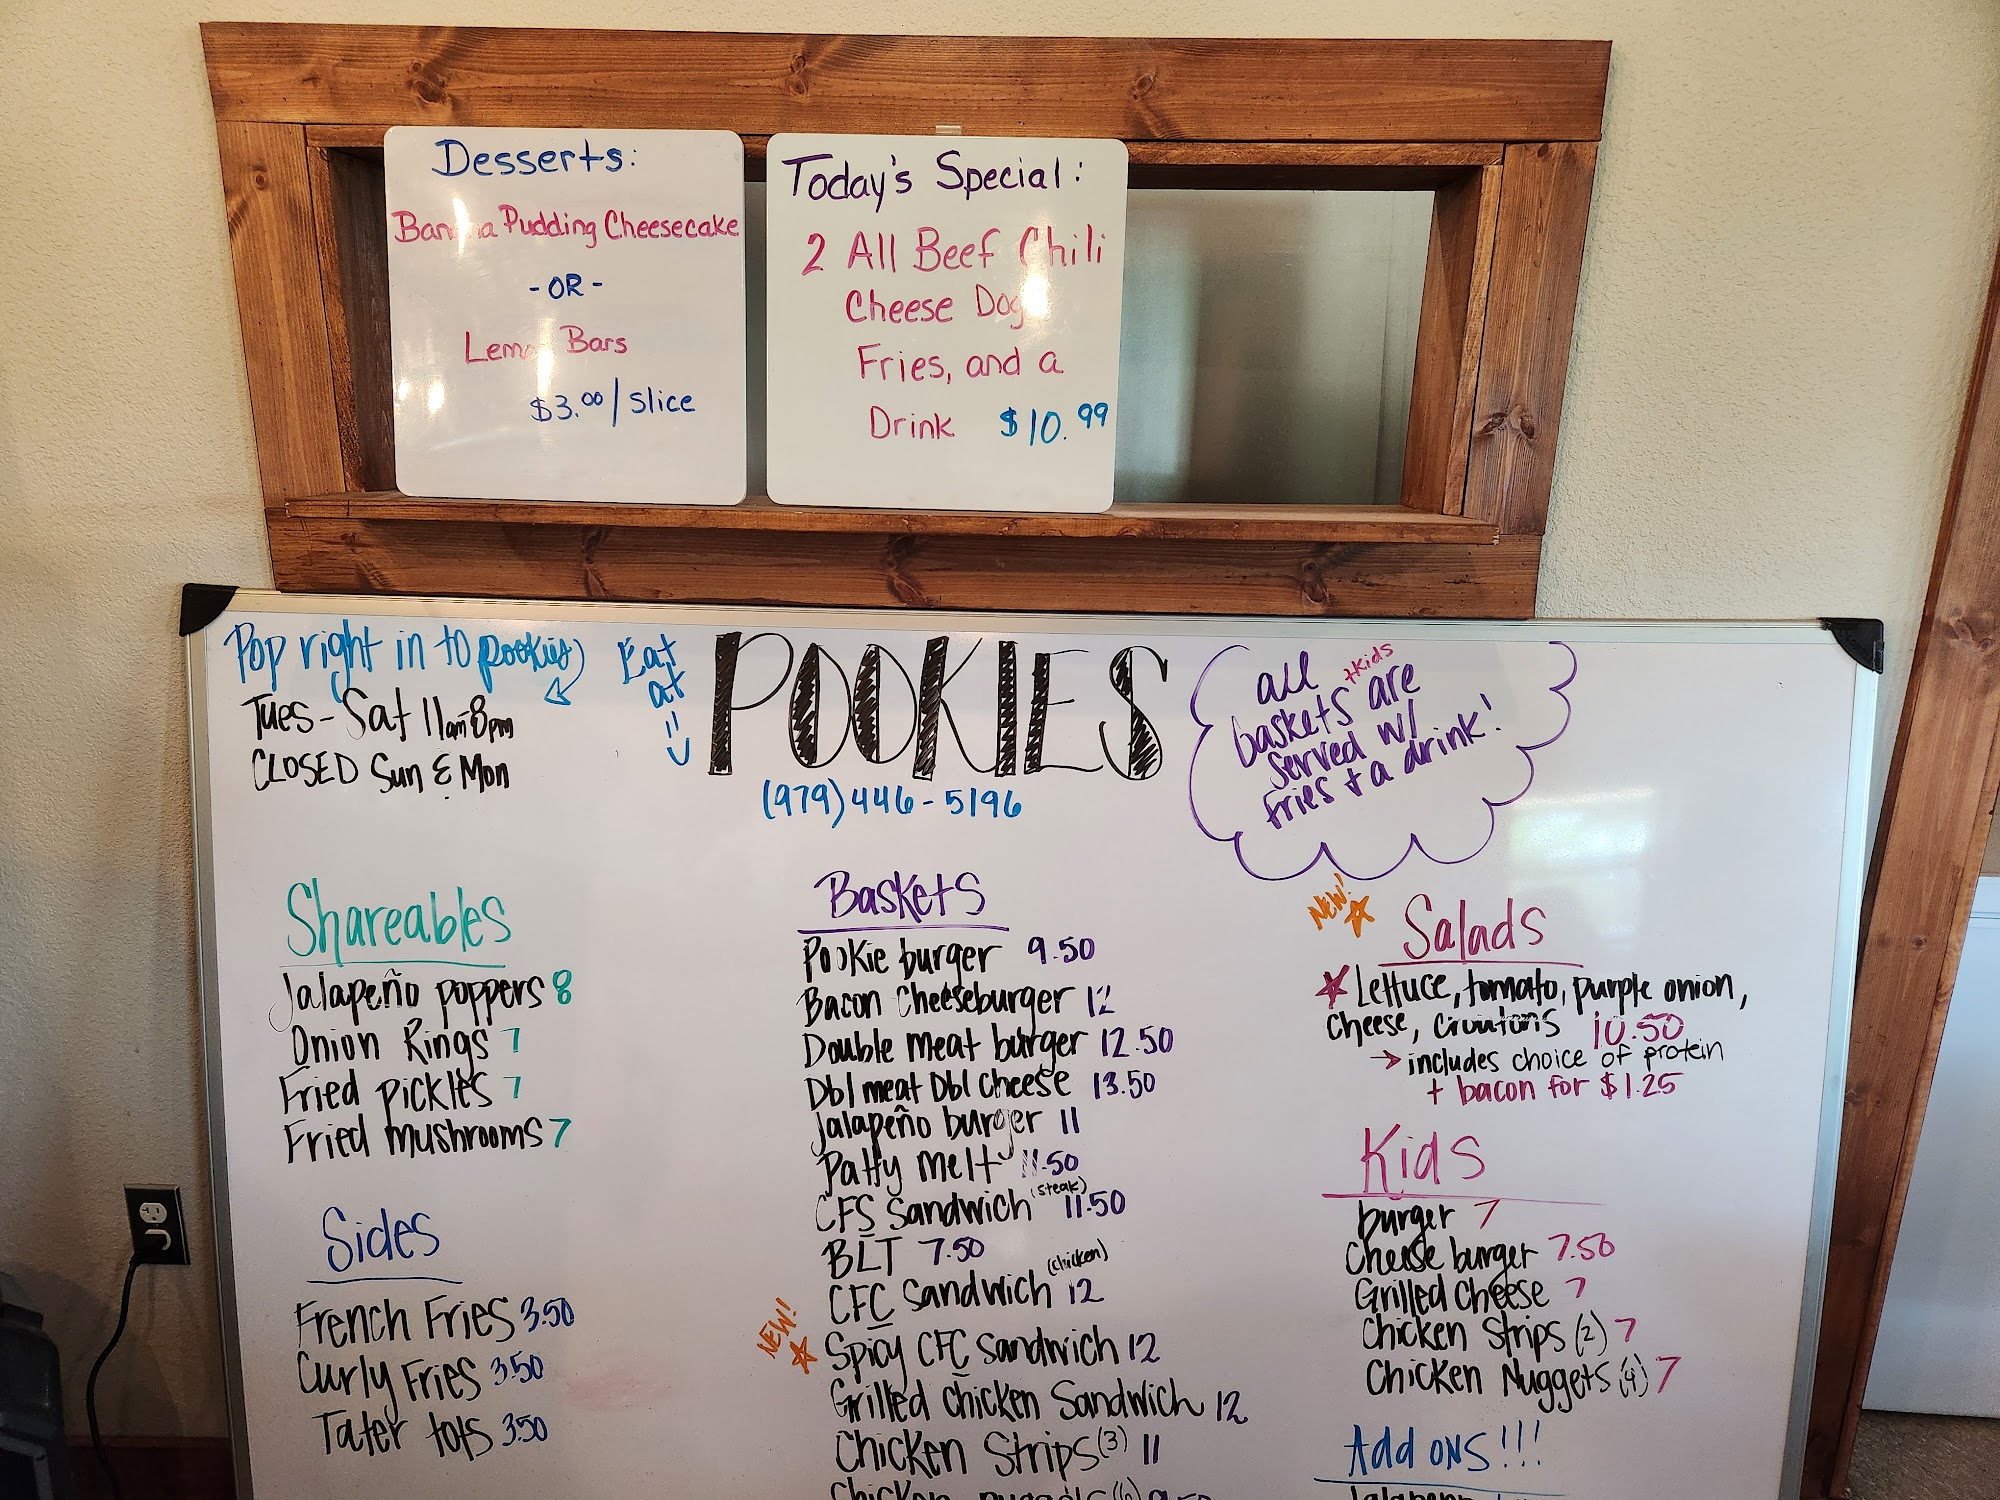 Desserts:
Banana Pudding Cheesecake
- OR -
Lemon Bars
$3.00/slice
Today's Special:
2 All Beef Chili
Cheese Dogs
Fries, and a
Drink $10.99
Pop right in to pookies
Tues - Sat 11am-8pm
CLOSED Sun & Mon
Eat
at
POOKIES
(979) 446-5196
all
baskets + kids are
served w/
fries + a drink!
Shareables
Jalapeño poppers 8
Onion Rings 7
Fried pickles 7
Fried mushrooms 7
Sides
French Fries 3.50
Curly Fries 3.50
Tater tots 3.50
Baskets
Pookie burger 9.50
Bacon Cheeseburger 12
Double meat burger 12.50
Dbl meat Dbl cheese 13.50
Jalapeño burger 11
Patty Melt 11.50
CFS Sandwich (steak) 11.50
BLT 7.50
CFC Sandwich (chicken) 12
NEW! Spicy CFC Sandwich 12
Grilled Chicken Sandwich 12
Chicken Strips (3) 11
Chicken nuggets (6) 9.50
NEW! Salads
Lettuce, tomato, purple onion,
cheese, croutons 10.50
→ includes choice of protein
+ bacon for $1.25
Kids
burger 7
Cheese burger 7.50
Grilled Cheese 7
Chicken Strips (2) 7
Chicken Nuggets (4) 7
Add ONS!!!